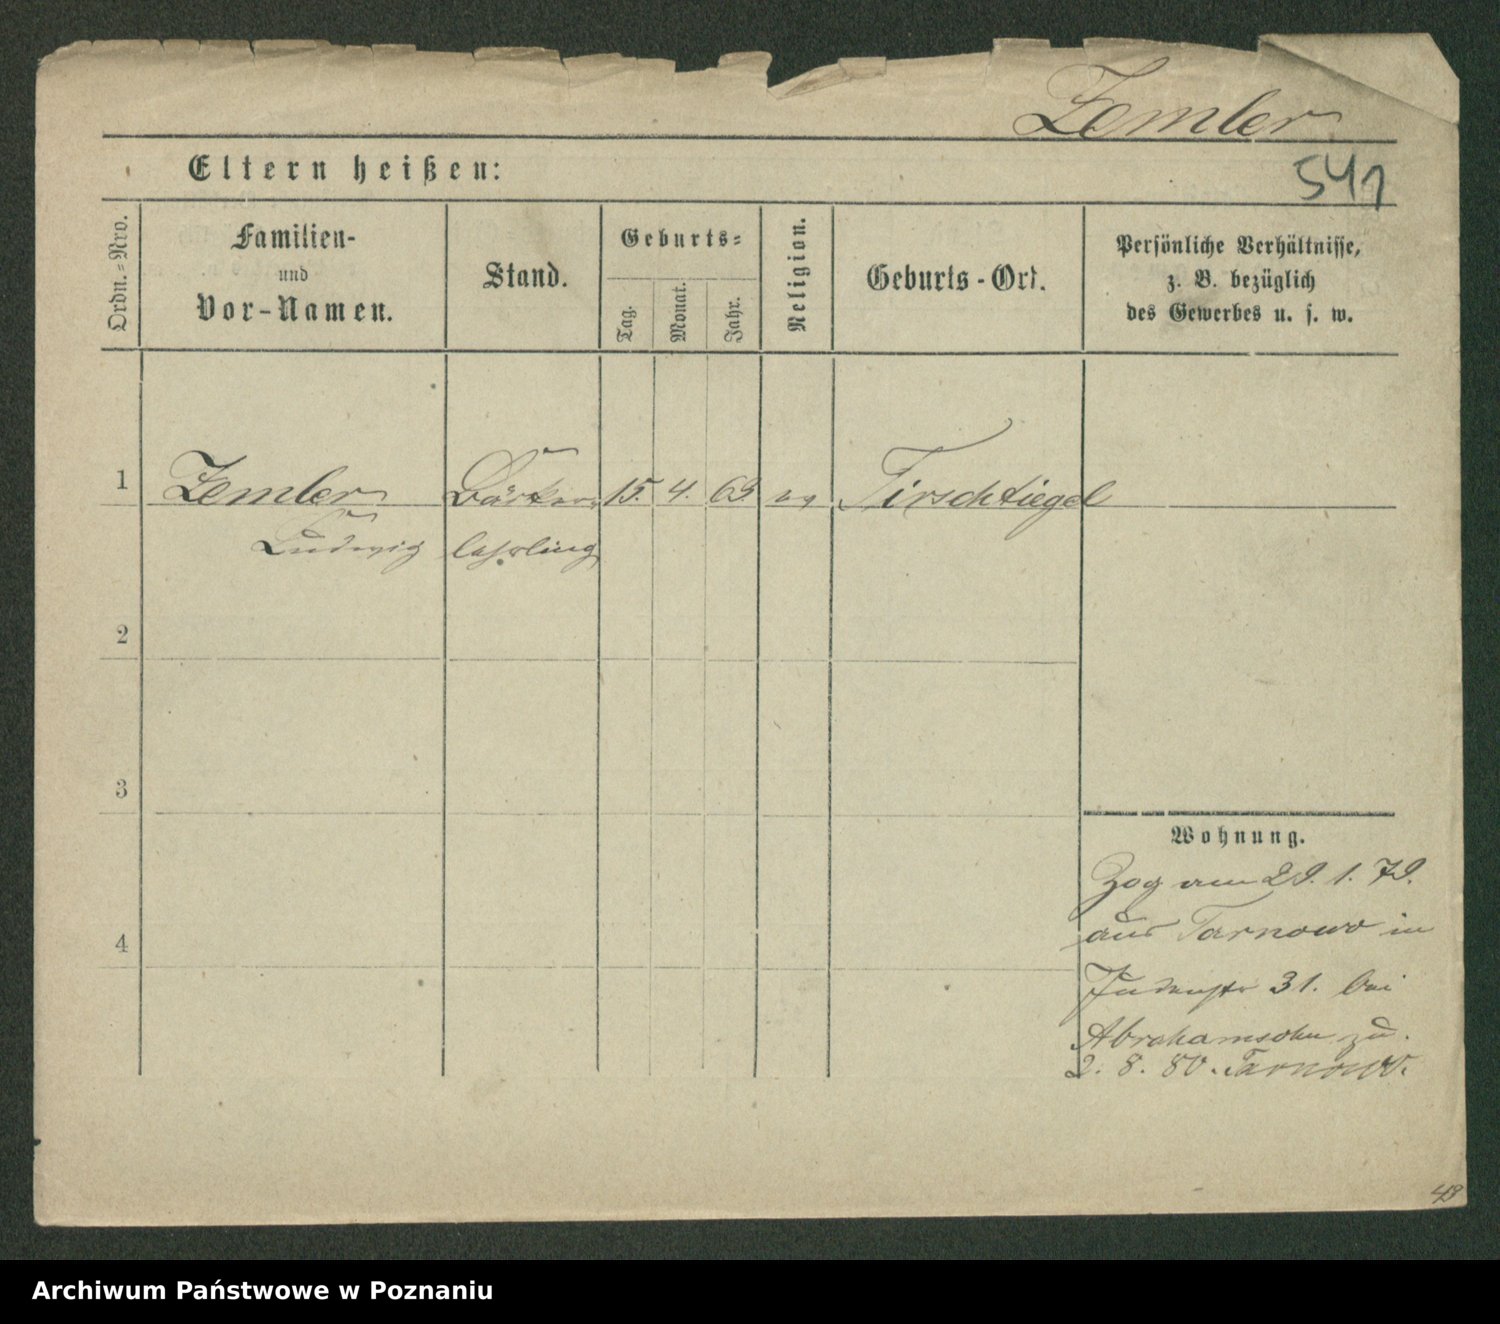 Zemler
541
Eltern heißen:
Ordn.-Nro.
Familien-
und
Vor-Namen.
Stand.
Geburts-
Tag.
Monat.
Jahr.
Religion.
Geburts-Ort.
Persönliche Verhältnisse,
z. B. bezüglich
des Gewerbes u. s. w.
1 Zemler Bäcker 15. 4. 63 ev Tirschtiegel
Ludwig lehrling
2
3
Wohnung.
Zog am 29. 1. 79.
aus Tarnowo in
4
Judenstr 31. bei
Abrahamsohn zu.
2. 8. 80. Tarnowo.
48
Archiwum Państwowe w Poznaniu